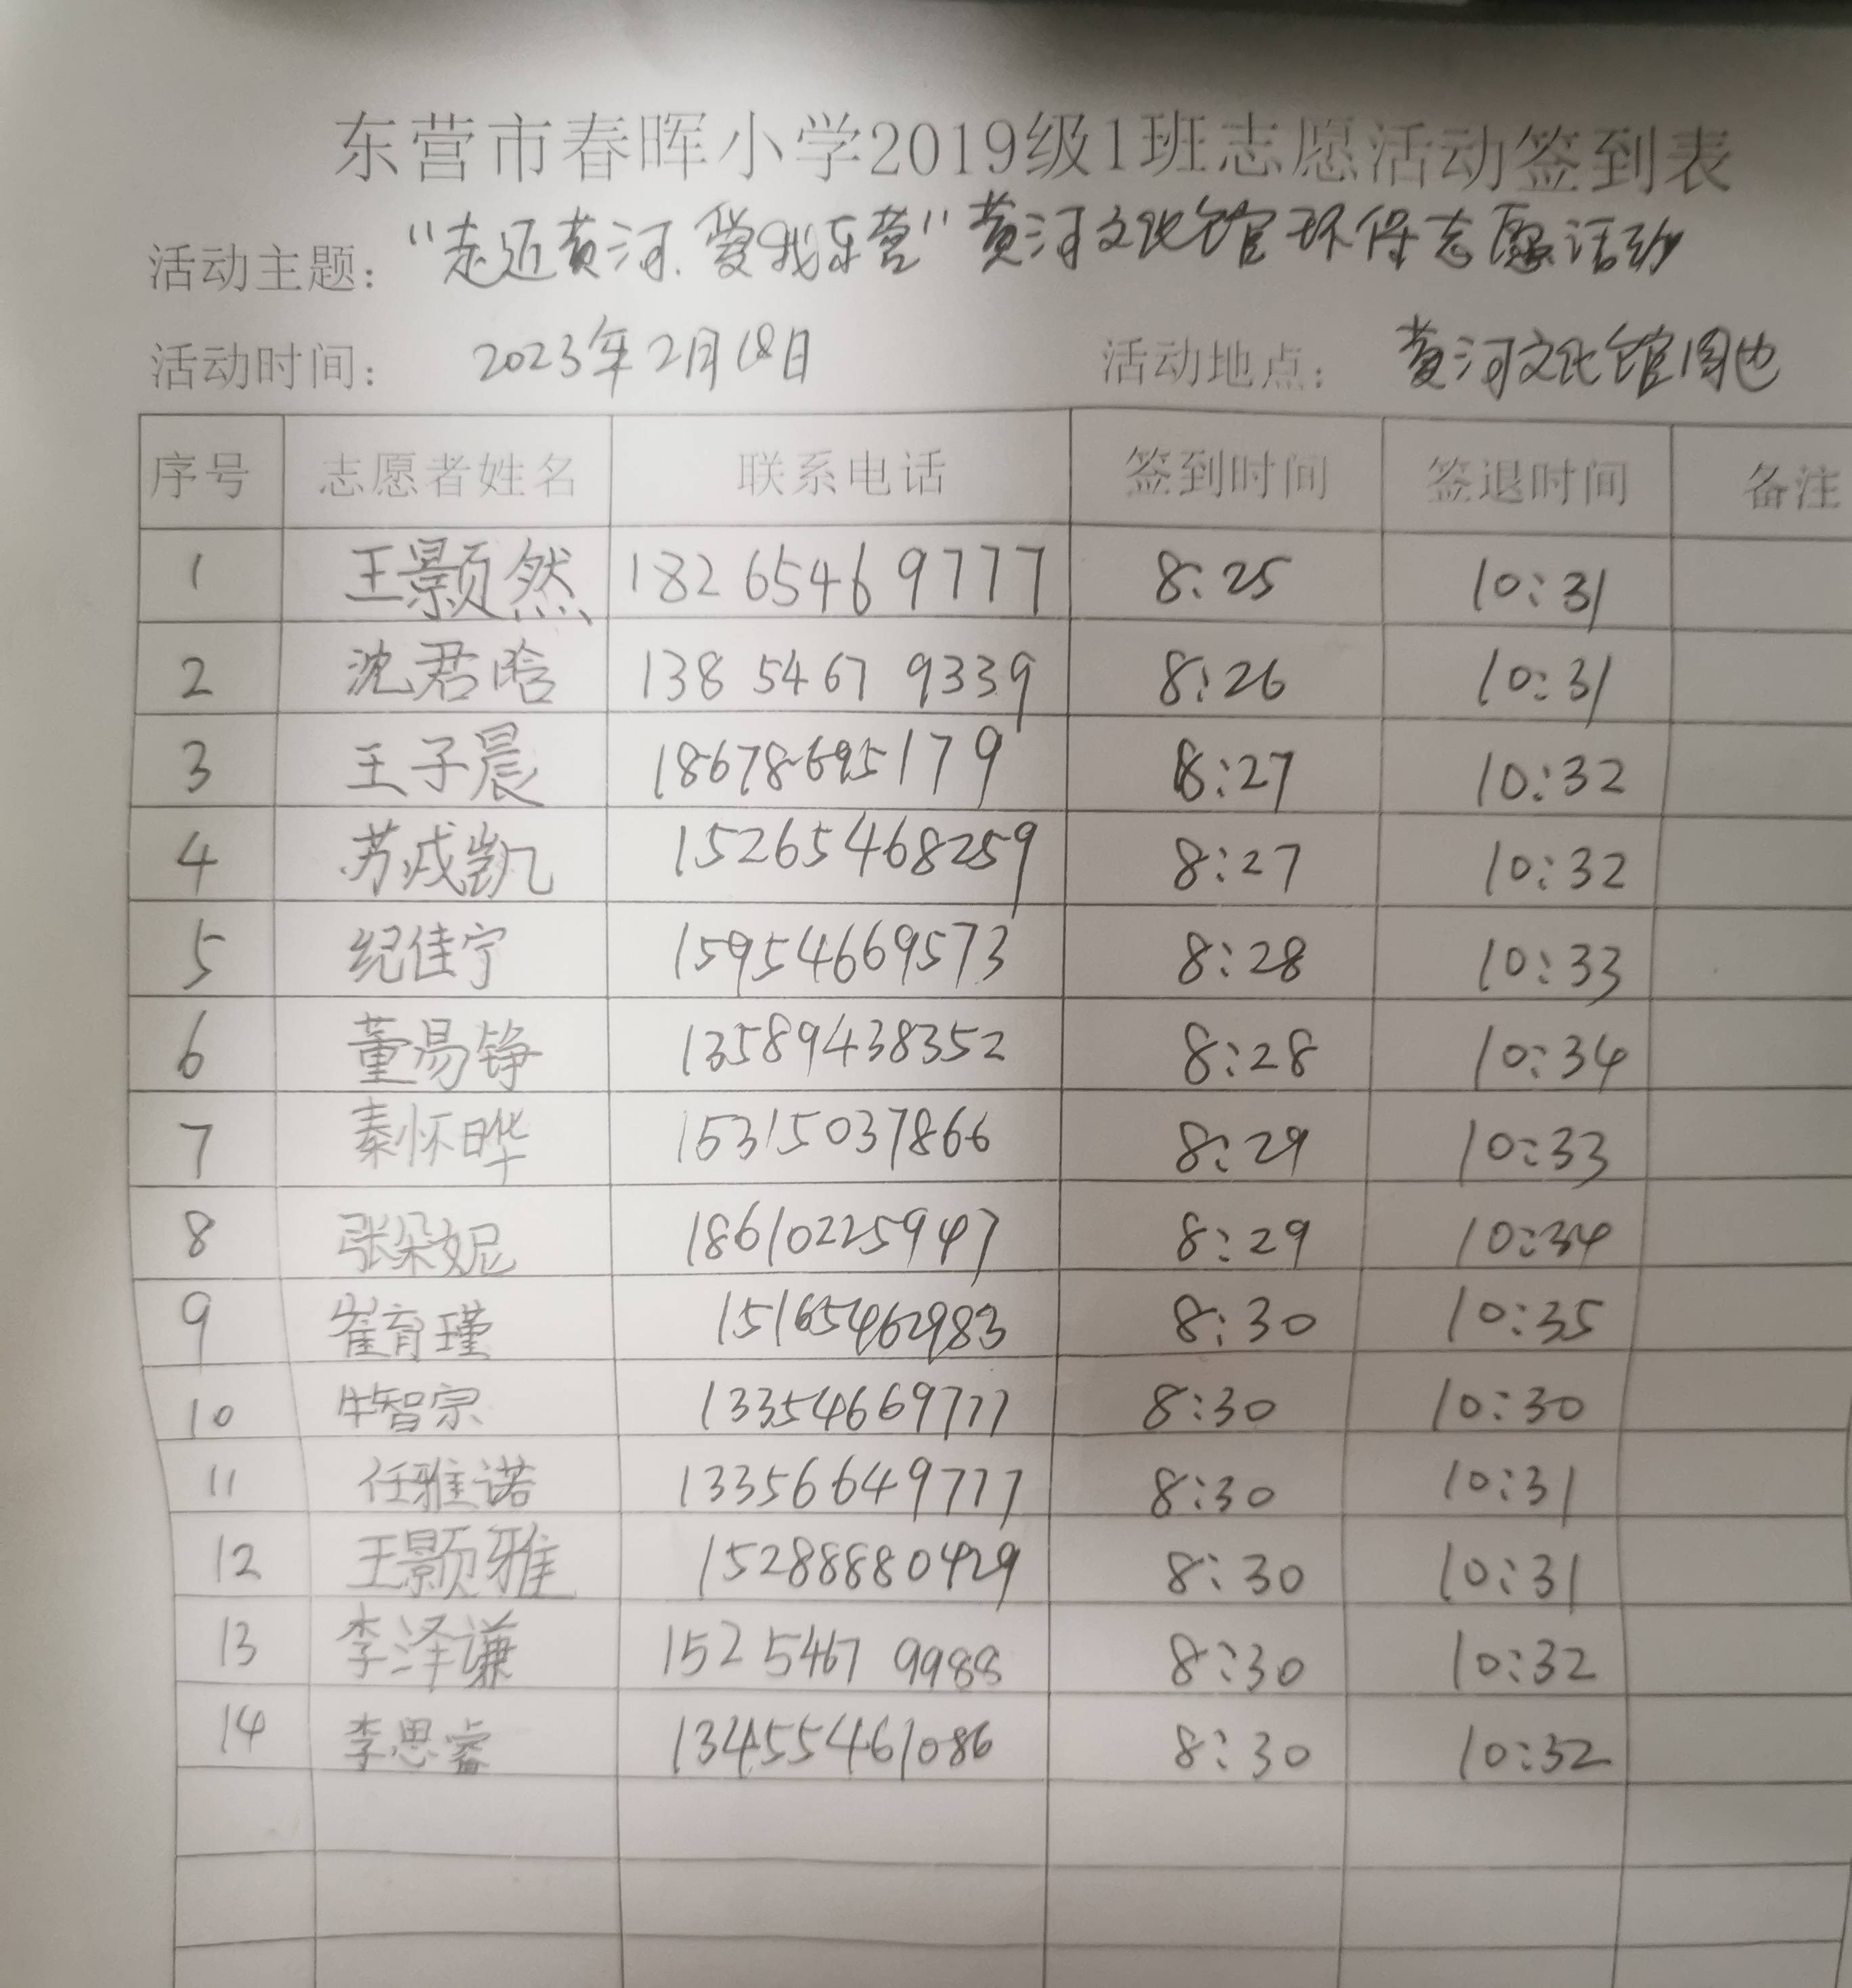 东营市春晖小学2019级1班志愿活动签到表
活动主题： “走近黄河、爱我东营”黄河文化馆环保志愿活动
活动时间： 2023年2月18日 活动地点： 黄河文化馆周边
序号 志愿者姓名 联系电话 签到时间 签退时间 备注
1 王颢然 18265469777 8:25 10:31
2 沈君晗 138 5467 9339 8:26 10:31
3 王子晨 18678695179 8:27 10:32
4 苏成凯 15265468259 8:27 10:32
5 纪佳宁 15954669573 8:28 10:33
6 董易铮 13589438352 8:28 10:34
7 秦怀晔 15315037866 8:29 10:33
8 张朵妮 18610225947 8:29 10:34
9 崔育瑾 15165462983 8:30 10:35
10 牛智宗 13354669777 8:30 10:30
11 任雅诺 13356649777 8:30 10:31
12 王颢雅 15288880429 8:30 10:31
13 李泽谦 152 5467 9988 8:30 10:32
14 李思睿 13455461086 8:30 10:32